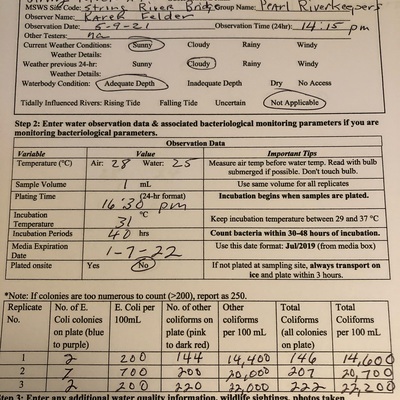 MSWS Site Code: String River Bridge Group Name: Pearl Riverkeepers
Observer Name: Karen Felder
Observation Date: 5-9-21 Observation Time (24hr): 14:15 pm
Other Testers: na
Current Weather Conditions: Sunny Cloudy Rainy Windy
Weather previous 24-hr: Sunny Cloudy Rainy Windy
Waterbody Condition: Adequate Depth Inadequate Depth Dry No Access
Tidally Influenced Rivers: Rising Tide Falling Tide Uncertain Not Applicable
Step 2: Enter water observation data & associated bacteriological monitoring parameters if you are
monitoring bacteriological parameters.
Observation Data
Variable Value Important Tips
Temperature (°C) Air: 28 Water: 25 Measure air temp before water temp. Read with bulb
submerged if possible. Don't touch bulb.
Sample Volume 1 mL Use same volume for all replicates
Plating Time 16:30 pm (24-hr format) Incubation begins when samples are plated.
Incubation Temperature 31 °C Keep incubation temperature between 29 and 37 °C
Incubation Periods 40 hrs Count bacteria within 30-48 hours of incubation.
Media Expiration Date 1-7-22 Use this date format: Jul/2019 (from media box)
Plated onsite Yes No If not plated at sampling site, always transport on
ice and plate within 3 hours.
*Note: If colonies are too numerous to count (>200), report as 250.
Replicate No. No. of E. Coli colonies on plate (blue to purple) E. Coli per 100mL No. of other coliforms on plate (pink to dark red) Other coliforms per 100 mL Total Coliforms (all colonies on plate) Total Coliforms per 100 mL
1 2 200 144 14,400 146 14,600
2 7 700 200 20,000 207 20,700
3 2 200 220 22,000 222 22,200
Step 3: Enter any additional water quality information, wildlife sightings, photos taken